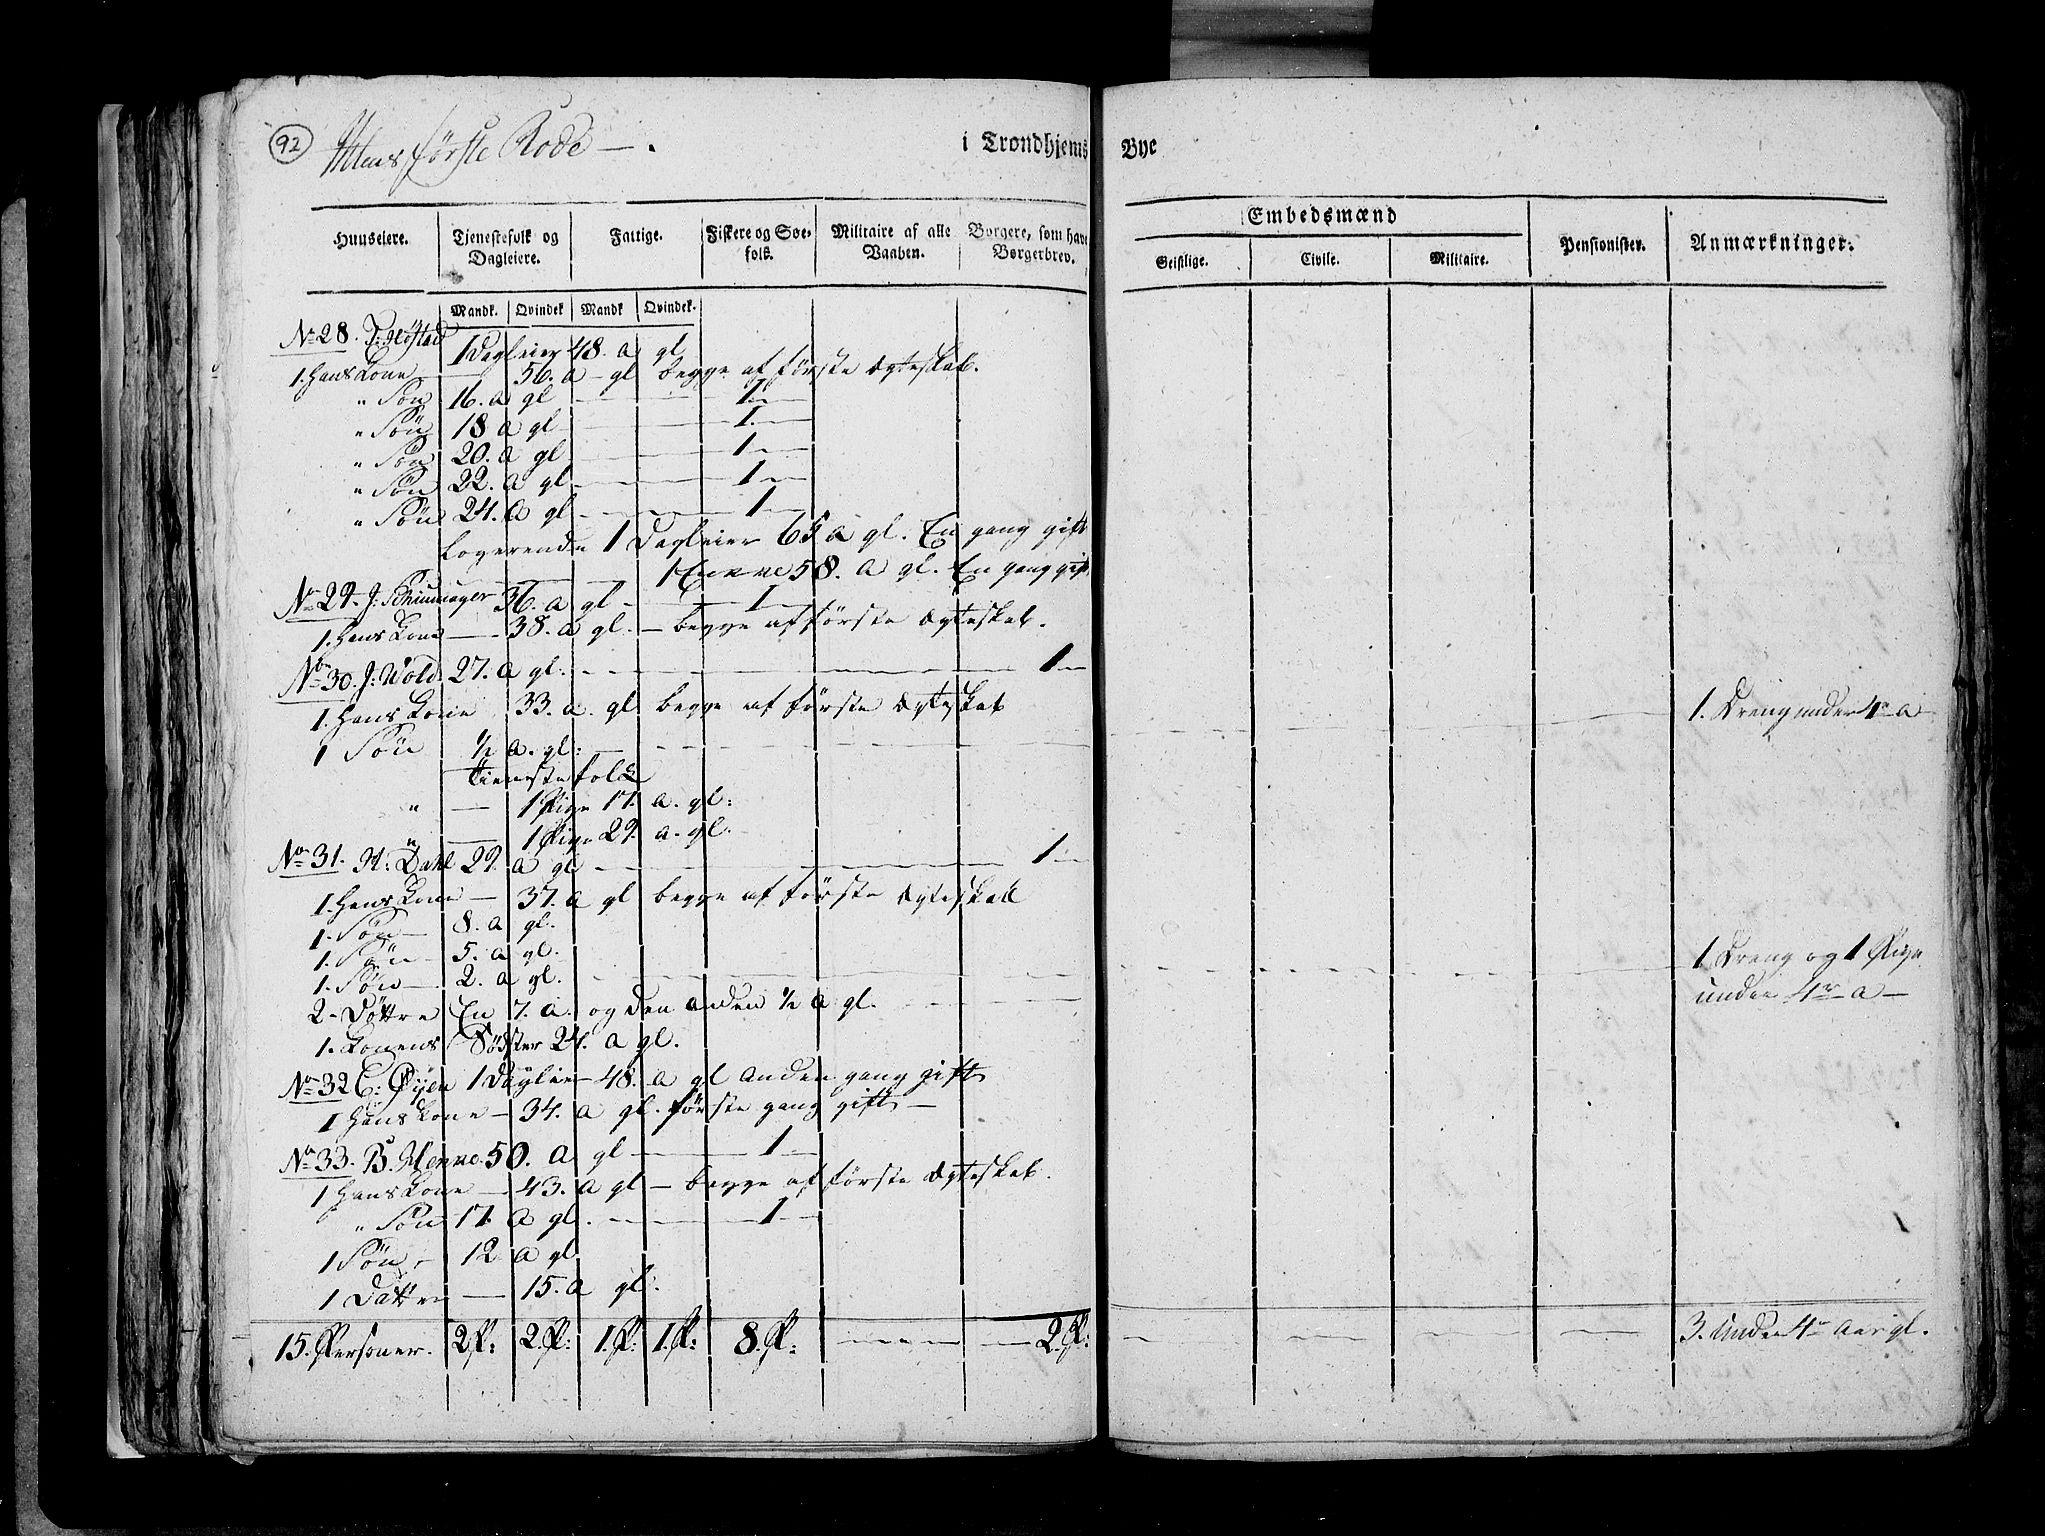 92
Ihlens første Rode —.
i Trondhjems Bye
Huuseiere.
Tjenestefolk og Dagleiere.
Fattige.
Fiskere og Søe-folk.
Militaire af alle Vaaben.
Borgere, som have Borgerbrev.
Embedsmænd
Geistlige.
Civile.
Militaire.
Pensionister.
Anmærkninger.
Mandk. Qvindek Mandk Qvindek.
No 28. 1 Dagleier 48. a gl
1. Hans Kone 56. a - gl begge af første Ægteskab.
" Søn 16. a gl — 1. —
" Søn 18 a gl — 1. —
" Søn 20. a gl — 1 —
" Søn 22. a gl — 1 —
" Søn 24. a gl — 1 —
Logerende 1 Dagleier 65 a gl. En gang gift
1 Enke 58. a gl. En gang gift
No 29. J: Schiumager 36. a gl — 1 —
1. Hans Kone — 38. a gl. — begge af første Ægteskab.
No 30. J: Wold. 27. a gl. — 1 —
1. Hans Kone 33. a. gl begge af første Ægteskab
1. Dreng under 4re a
1 Søn ½ a. gl: —
Tienestefolk
" — 1 Pige 17. a. gl:
" — 1 Pige 29. a. gl.
No 31. H: Dahl 29. a gl — 1 —
1. Hans Kone — 37. a gl begge af første Ægteskab
1. Søn — 8. a gl.
1. Søn — 5. a gl.
1. Søn — 2. a gl.
1 Dreng og 1 Pige
under 4re a —
2 - Døttre En 7. a. og den anden ½ a gl.
1. Konens Sødster 24. a gl.
No 32 C: Øyen 1 Dagleier — 48. a gl anden gang gift
1 Hans Kone — 34. a gl. første gang gift —
No 33. B. 50. a gl — 1 —
1 Hans Kone — 43. a gl — begge af første Ægteskab.
" Søn 17. a gl. — 1 —
1 Søn - 12 a gl
1 Datter — 15. a gl.
15. Personer. 2 P: 2. P: 1. P: 1. P: 8. P: — 2. P: — 3. under 4re aar gl.